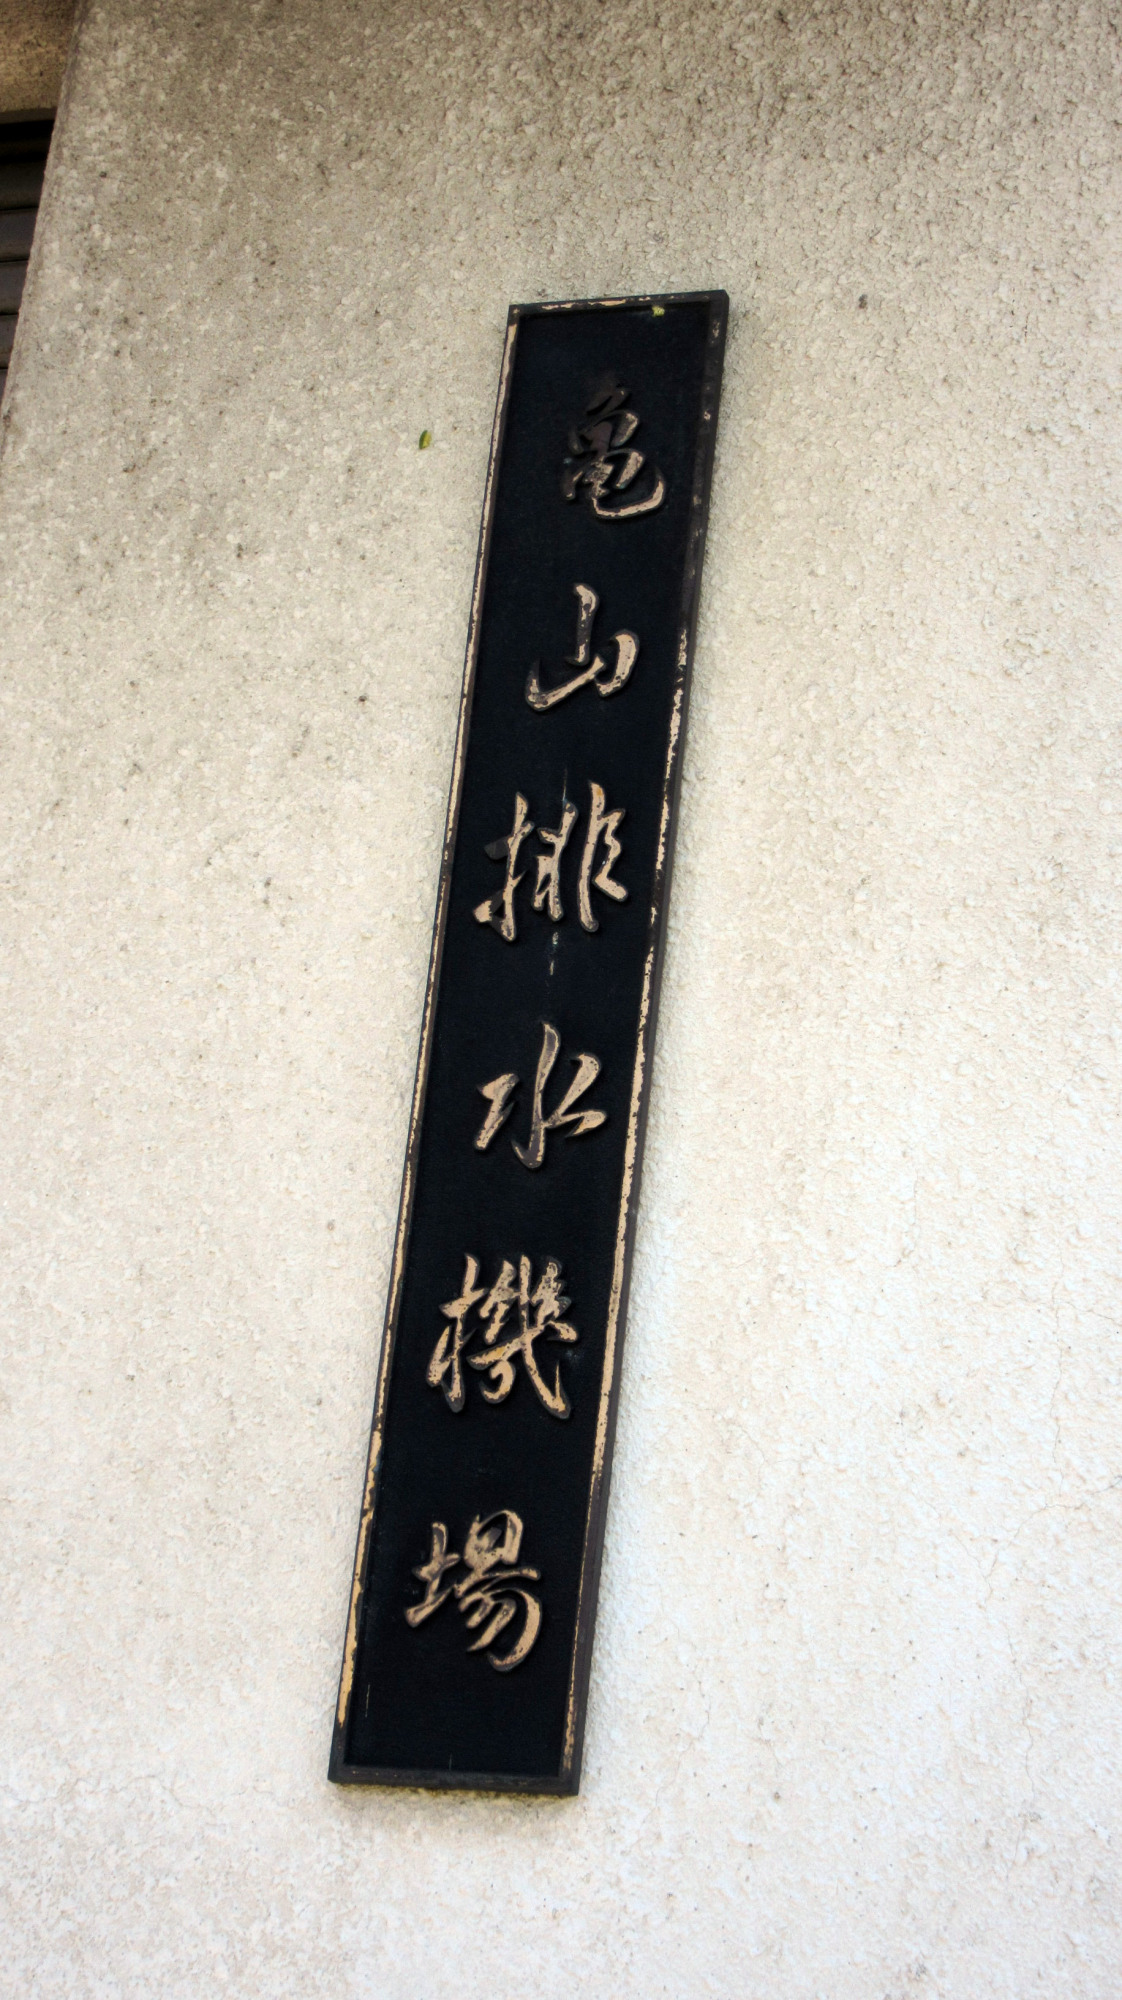 亀山排水機場